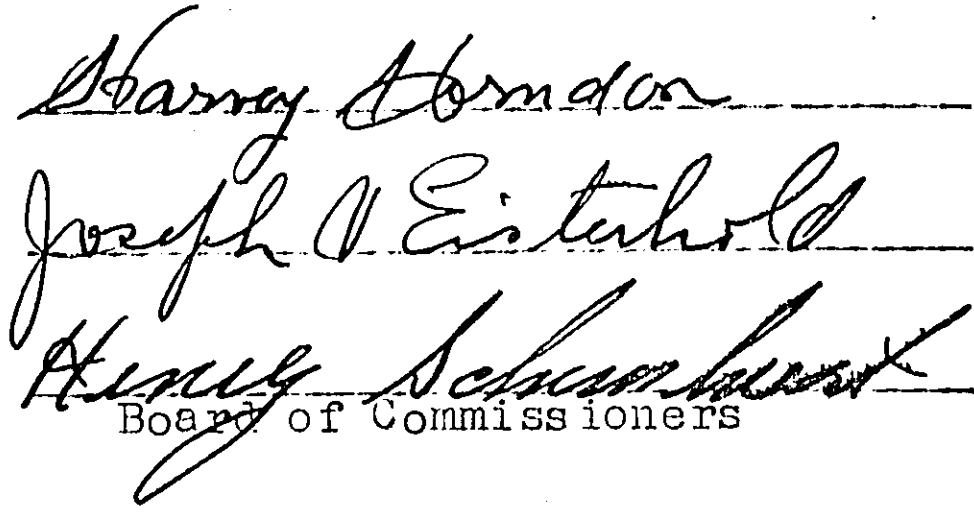 Harvey Herndon
Joseph V Eisterhold
Henry
Board of Commissioners